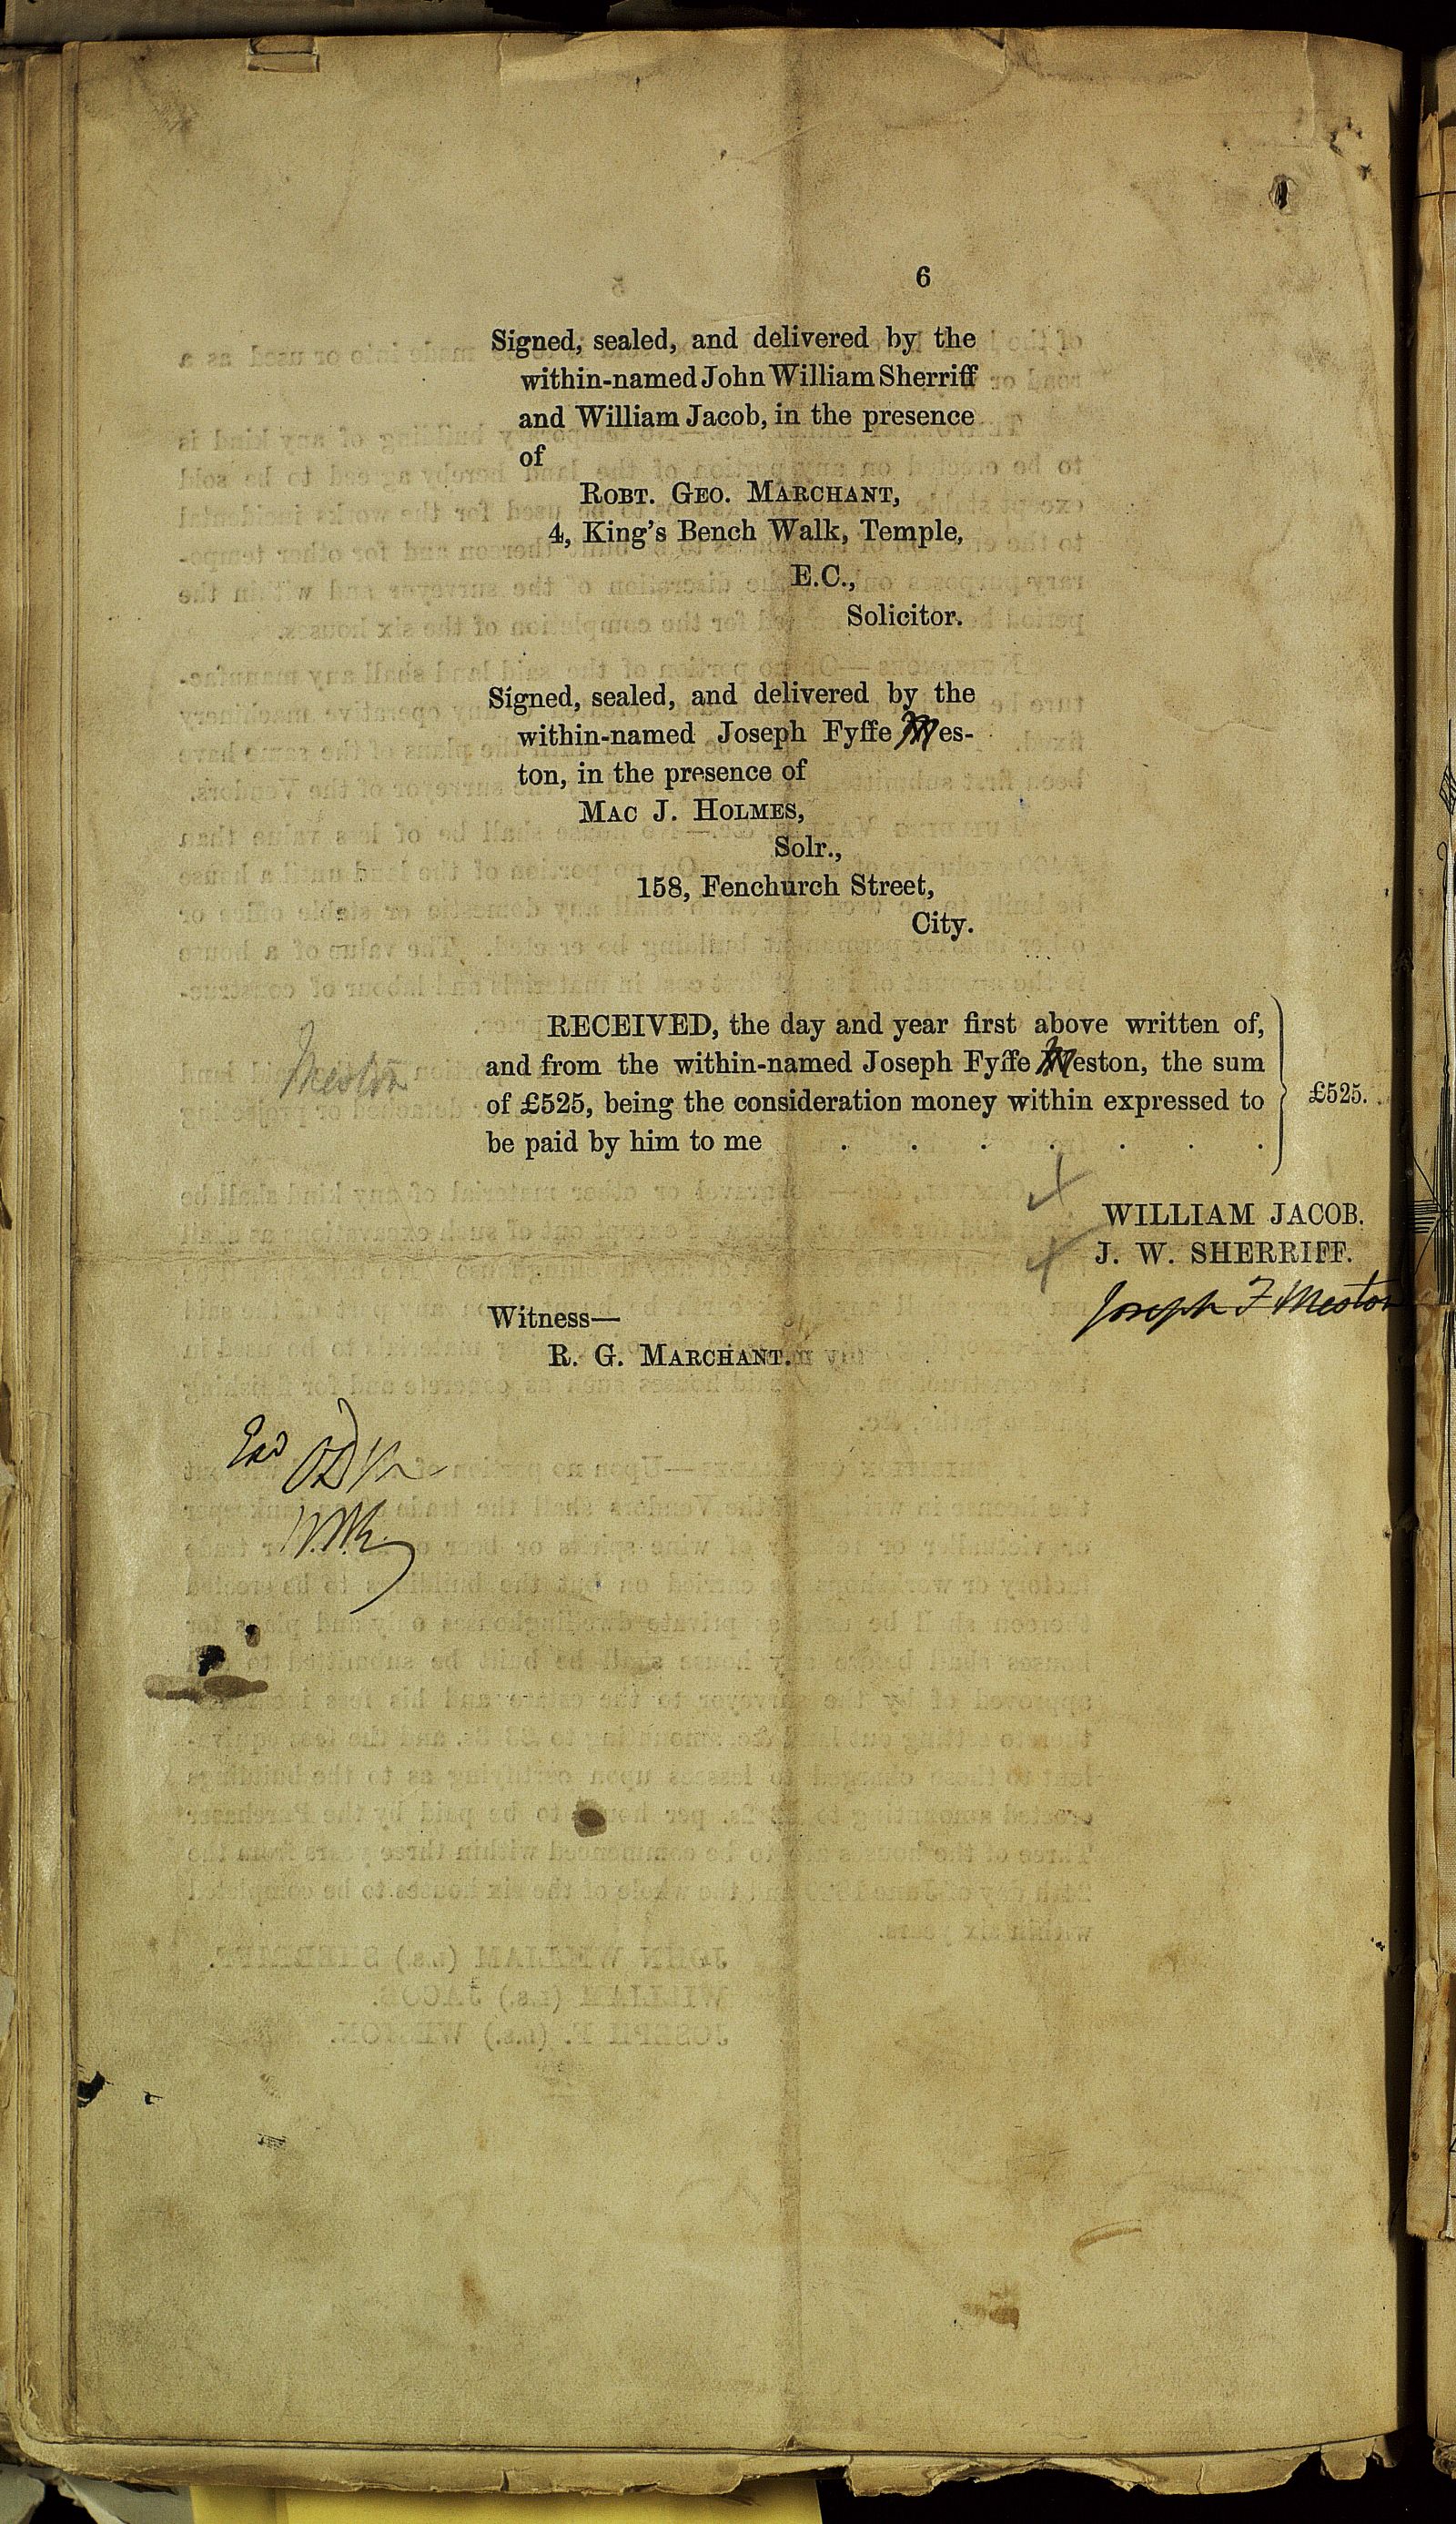 6
Signed, sealed, and delivered by the
within-named John William Sherriff
and William Jacob, in the presence
of
ROBT. GEO. MARCHANT,
4, King's Bench Walk, Temple,
E.C.,
Solicitor.
Signed, sealed, and delivered by the
within-named Joseph Fyffe Mes-
ton, in the presence of
MAC J. HOLMES,
Solr.,
158, Fenchurch Street,
City.
RECEIVED, the day and year first above written of,
and from the within-named Joseph Fyffe Meston, the sum
of £525, being the consideration money within expressed to
be paid by him to me . . . . . . .
£525.
Meston
WILLIAM JACOB.
J. W. SHERRIFF.
Joseph F Meston
Witness—
R. G. MARCHANT.